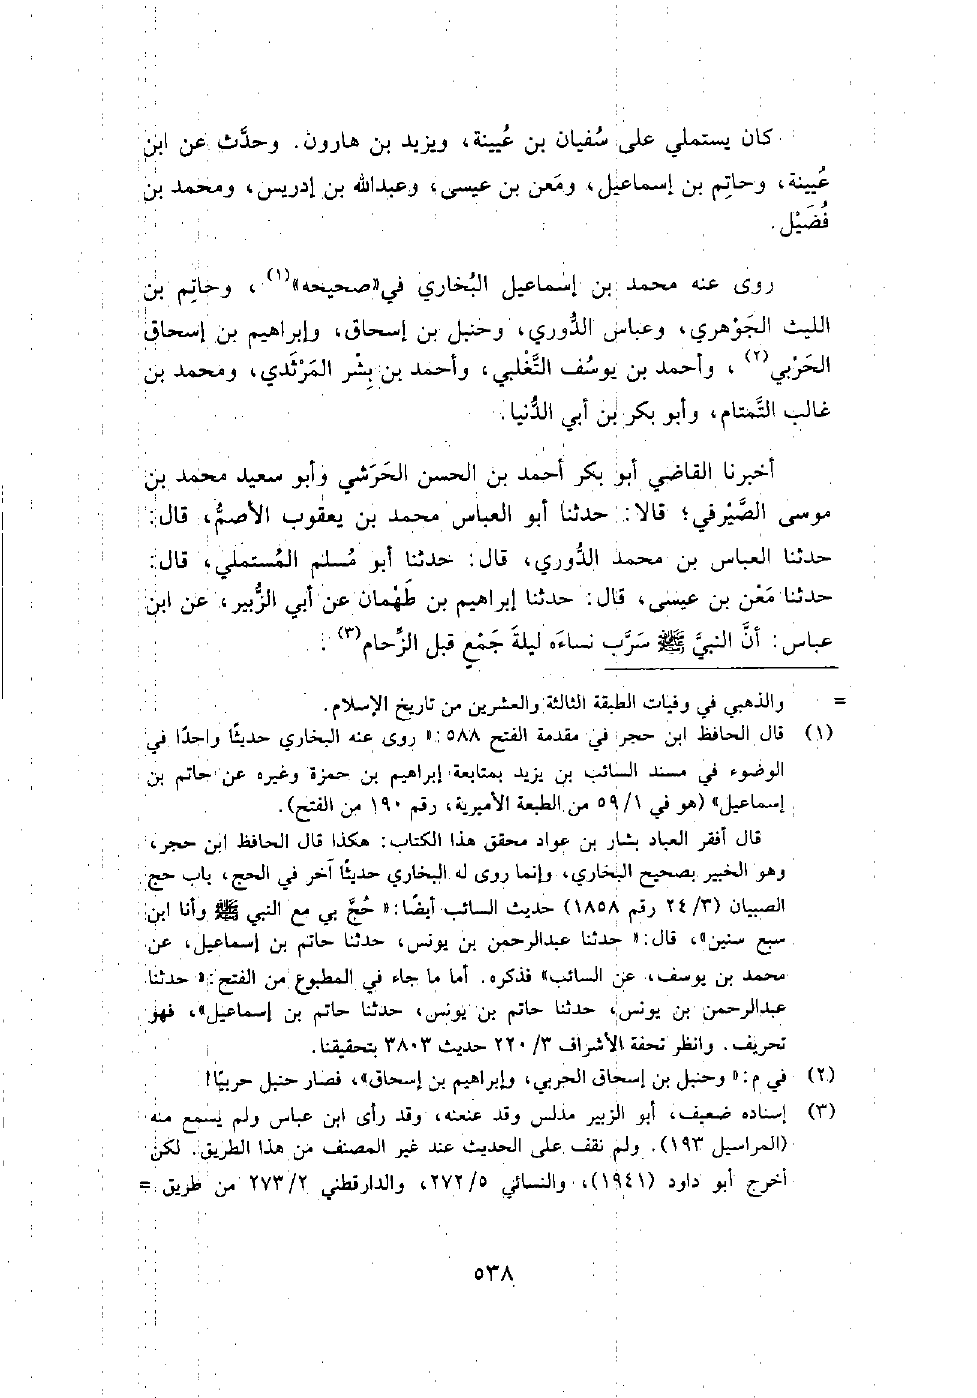 كان يستملي على سُفيان بن عُيينة، ويزيد بن هارون. وحدَّث عن ابن
عُيينة، وحاتِم بن إسماعيل، ومَعن بن عيسى، وعبدالله بن إدريس، ومحمد بن
فُضَيْل.
روى عنه محمد بن إسماعيل البُخاري في «صحيحه»(١)، وحاتِم بن
الليث الجَوْهري، وعباس الدُّوري، وحنبل بن إسحاق، وإبراهيم بن إسحاق
الحَرْبي(٢)، وأحمد بن يوسُف التَّغْلبي، وأحمد بن بِشْر المَرْثَدي، ومحمد بن
غالب التَّمتام، وأبو بكر بن أبي الدُّنيا.
أخبرنا القاضي أبو بكر أحمد بن الحسن الحَرَشي وأبو سعيد محمد بن
موسى الصَّيْرفي؛ قالا: حدثنا أبو العباس محمد بن يعقوب الأصمُّ، قال:
حدثنا العباس بن محمد الدُّوري، قال: حدثنا أبو مُسلم المُستملي، قال:
حدثنا مَعْن بن عيسى، قال: حدثنا إبراهيم بن طَهْمان عن أبي الزُّبير، عن ابن
عباس: أنَّ النبيَّ ﷺ سَرَّب نساءَه ليلةَ جَمْعٍ قبل الزِّحام(٣).
= والذهبي في وفيات الطبقة الثالثة والعشرين من تاريخ الإسلام.
(١) قال الحافظ ابن حجر في مقدمة الفتح ٥٨٨: «روى عنه البخاري حديثًا واحدًا في
الوضوء في مسند السائب بن يزيد بمتابعة إبراهيم بن حمزة وغيره عن حاتم بن
إسماعيل» (هو في ١/ ٥٩ من الطبعة الأميرية، رقم ١٩٠ من الفتح).
قال أفقر العباد بشار بن عواد محقق هذا الكتاب: هكذا قال الحافظ ابن حجر،
وهو الخبير بصحيح البخاري، وإنما روى له البخاري حديثًا آخر في الحج، باب حج
الصبيان (٣/ ٢٤ رقم ١٨٥٨) حديث السائب أيضًا: «حُجَّ بي مع النبي ﷺ وأنا ابن
سبع سنين»، قال: «حدثنا عبدالرحمن بن يونس، حدثنا حاتم بن إسماعيل، عن
محمد بن يوسف، عن السائب» فذكره. أما ما جاء في المطبوع من الفتح: «حدثنا
عبدالرحمن بن يونس، حدثنا حاتم بن يونس، حدثنا حاتم بن إسماعيل»، فهو
تحريف. وانظر تحفة الأشراف ٣/ ٢٢٠ حديث ٣٨٠٣ بتحقيقنا.
(٢) في م: «وحنبل بن إسحاق الحربي، وإبراهيم بن إسحاق»، فصار حنبل حربيًا!
(٣) إسناده ضعيف، أبو الزبير مدلس وقد عنعنه، وقد رأى ابن عباس ولم يسمع منه
(المراسيل ١٩٣). ولم نقف على الحديث عند غير المصنف من هذا الطريق. لكن
أخرج أبو داود (١٩٤١)، والنسائي ٥/ ٢٧٢، والدارقطني ٢/ ٢٧٣ من طريق =
٥٣٨